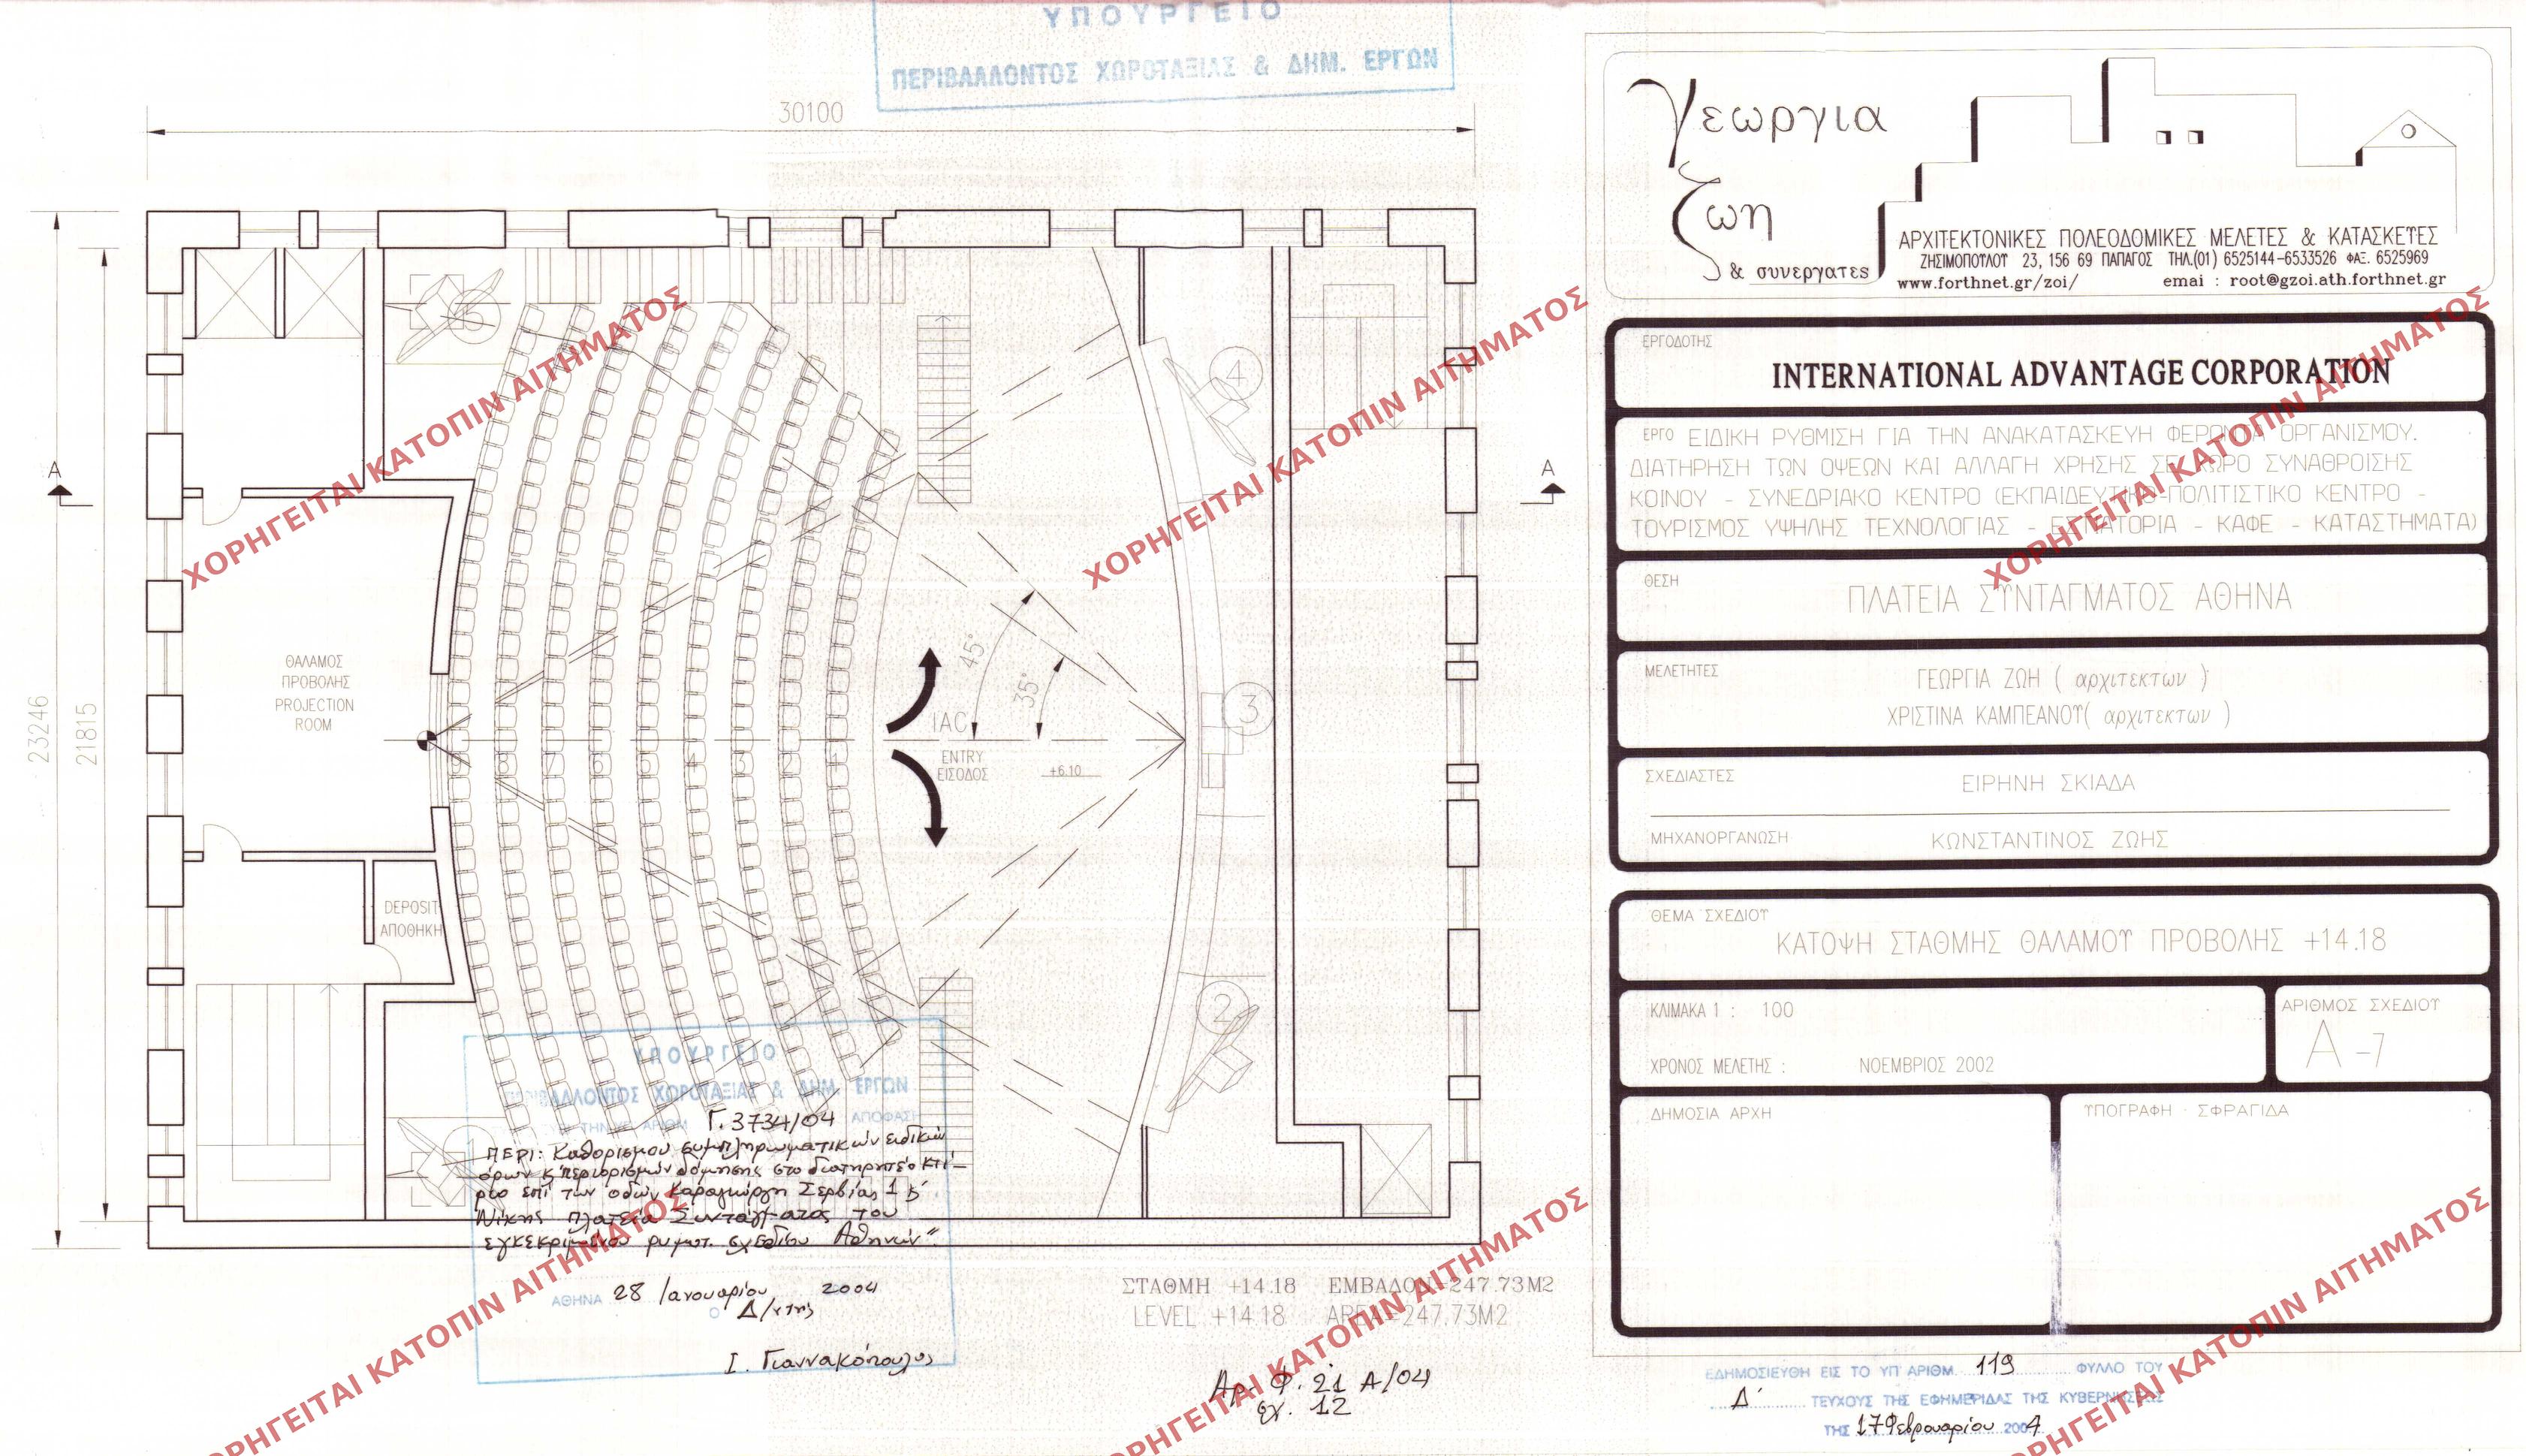 ΥΠΟΥΡΓΕΙΟ
ΠΕΡΙΒΑΛΛΟΝΤΟΣ ΧΩΡΟΤΑΞΙΑΣ & ΔΗΜ. ΕΡΓΩΝ
30100
23246
21815
A
A
5
4
3
2
1
ΘΑΛΑΜΟΣ
ΠΡΟΒΟΛΗΣ
PROJECTION
ROOM
DEPOSIT
ΑΠΟΘΗΚΗ
9 8 7 6 5 4 3 2 1
45°
35°
IAC
ENTRY
ΕΙΣΟΔΟΣ
+6.10
ΥΠΟΥΡΓΕΙΟ
ΠΕΡΙΒΑΛΛΟΝΤΟΣ ΧΩΡΟΤΑΞΙΑΣ & ΔΗΜ. ΕΡΓΩΝ
ΑΡΙΘΜ Γ.3734/04 ΑΠΟΦΑΣΗ
ΠΕΡΙ: Καθορισμού συμπληρωματικών ειδικών
όρων & περιορισμών δόμησης στο διατηρητέο κτί-
ριο επί των οδών Καραγιώργη Σερβίας 1 &
Νίκης πλατεία Συντάγματος του
εγκεκριμένου ρυμοτ. σχεδίου Αθηνών"
ΑΘΗΝΑ 28 Ιανουαρίου 2004
Ο Δ/ντής
Ι. Γιαννακόπουλος
ΣΤΑΘΜΗ +14.18 ΕΜΒΑΔΟΝ=247.73M2
LEVEL +14.18 AREA=247.73M2
Αρ. Φ. 21 Α/04
σχ. 12
γεωργια
ζωη
& συνεργατες
ΑΡΧΙΤΕΚΤΟΝΙΚΕΣ ΠΟΛΕΟΔΟΜΙΚΕΣ ΜΕΛΕΤΕΣ & ΚΑΤΑΣΚΕΥΕΣ
ΖΗΣΙΜΟΠΟΥΛΟΥ 23, 156 69 ΠΑΠΑΓΟΣ ΤΗΛ.(01) 6525144-6533526 ΦΑΞ. 6525969
www.forthnet.gr/zoi/ emai : root@gzoi.ath.forthnet.gr
ΕΡΓΟΔΟΤΗΣ
INTERNATIONAL ADVANTAGE CORPORATION
ΕΡΓΟ ΕΙΔΙΚΗ ΡΥΘΜΙΣΗ ΓΙΑ ΤΗΝ ΑΝΑΚΑΤΑΣΚΕΥΗ ΦΕΡΟΝΤΑ ΟΡΓΑΝΙΣΜΟΥ.
ΔΙΑΤΗΡΗΣΗ ΤΩΝ ΟΨΕΩΝ ΚΑΙ ΑΛΛΑΓΗ ΧΡΗΣΗΣ ΣΕ ΧΩΡΟ ΣΥΝΑΘΡΟΙΣΗΣ
ΚΟΙΝΟΥ - ΣΥΝΕΔΡΙΑΚΟ ΚΕΝΤΡΟ (ΕΚΠΑΙΔΕΥΤΙΚΟ-ΠΟΛΙΤΙΣΤΙΚΟ ΚΕΝΤΡΟ -
ΤΟΥΡΙΣΜΟΣ ΥΨΗΛΗΣ ΤΕΧΝΟΛΟΓΙΑΣ - ΕΣΤΙΑΤΟΡΙΑ - ΚΑΦΕ - ΚΑΤΑΣΤΗΜΑΤΑ)
ΘΕΣΗ
ΠΛΑΤΕΙΑ ΣΥΝΤΑΓΜΑΤΟΣ ΑΘΗΝΑ
ΜΕΛΕΤΗΤΕΣ
ΓΕΩΡΓΙΑ ΖΩΗ ( αρχιτεκτων )
ΧΡΙΣΤΙΝΑ ΚΑΜΠΕΑΝΟΥ( αρχιτεκτων )
ΣΧΕΔΙΑΣΤΕΣ
ΕΙΡΗΝΗ ΣΚΙΑΔΑ
ΜΗΧΑΝΟΡΓΑΝΩΣΗ
ΚΩΝΣΤΑΝΤΙΝΟΣ ΖΩΗΣ
ΘΕΜΑ ΣΧΕΔΙΟΥ
ΚΑΤΟΨΗ ΣΤΑΘΜΗΣ ΘΑΛΑΜΟΥ ΠΡΟΒΟΛΗΣ +14.18
ΚΛΙΜΑΚΑ 1 : 100
ΧΡΟΝΟΣ ΜΕΛΕΤΗΣ : ΝΟΕΜΒΡΙΟΣ 2002
ΑΡΙΘΜΟΣ ΣΧΕΔΙΟΥ
A -7
ΔΗΜΟΣΙΑ ΑΡΧΗ
ΥΠΟΓΡΑΦΗ - ΣΦΡΑΓΙΔΑ
ΕΔΗΜΟΣΙΕΥΘΗ ΕΙΣ ΤΟ ΥΠ ΑΡΙΘΜ. 119 ΦΥΛΛΟ ΤΟΥ
Δ' ΤΕΥΧΟΥΣ ΤΗΣ ΕΦΗΜΕΡΙΔΑΣ ΤΗΣ ΚΥΒΕΡΝΗΣΕΩΣ
ΤΗΣ 17 Φεβρουαρίου 2004
ΧΟΡΗΓΕΙΤΑΙ ΚΑΤΟΠΙΝ ΑΙΤΗΜΑΤΟΣ
ΧΟΡΗΓΕΙΤΑΙ ΚΑΤΟΠΙΝ ΑΙΤΗΜΑΤΟΣ
ΧΟΡΗΓΕΙΤΑΙ ΚΑΤΟΠΙΝ ΑΙΤΗΜΑΤΟΣ
ΧΟΡΗΓΕΙΤΑΙ ΚΑΤΟΠΙΝ ΑΙΤΗΜΑΤΟΣ
ΧΟΡΗΓΕΙΤΑΙ ΚΑΤΟΠΙΝ ΑΙΤΗΜΑΤΟΣ
ΧΟΡΗΓΕΙΤΑΙ ΚΑΤΟΠΙΝ ΑΙΤΗΜΑΤΟΣ